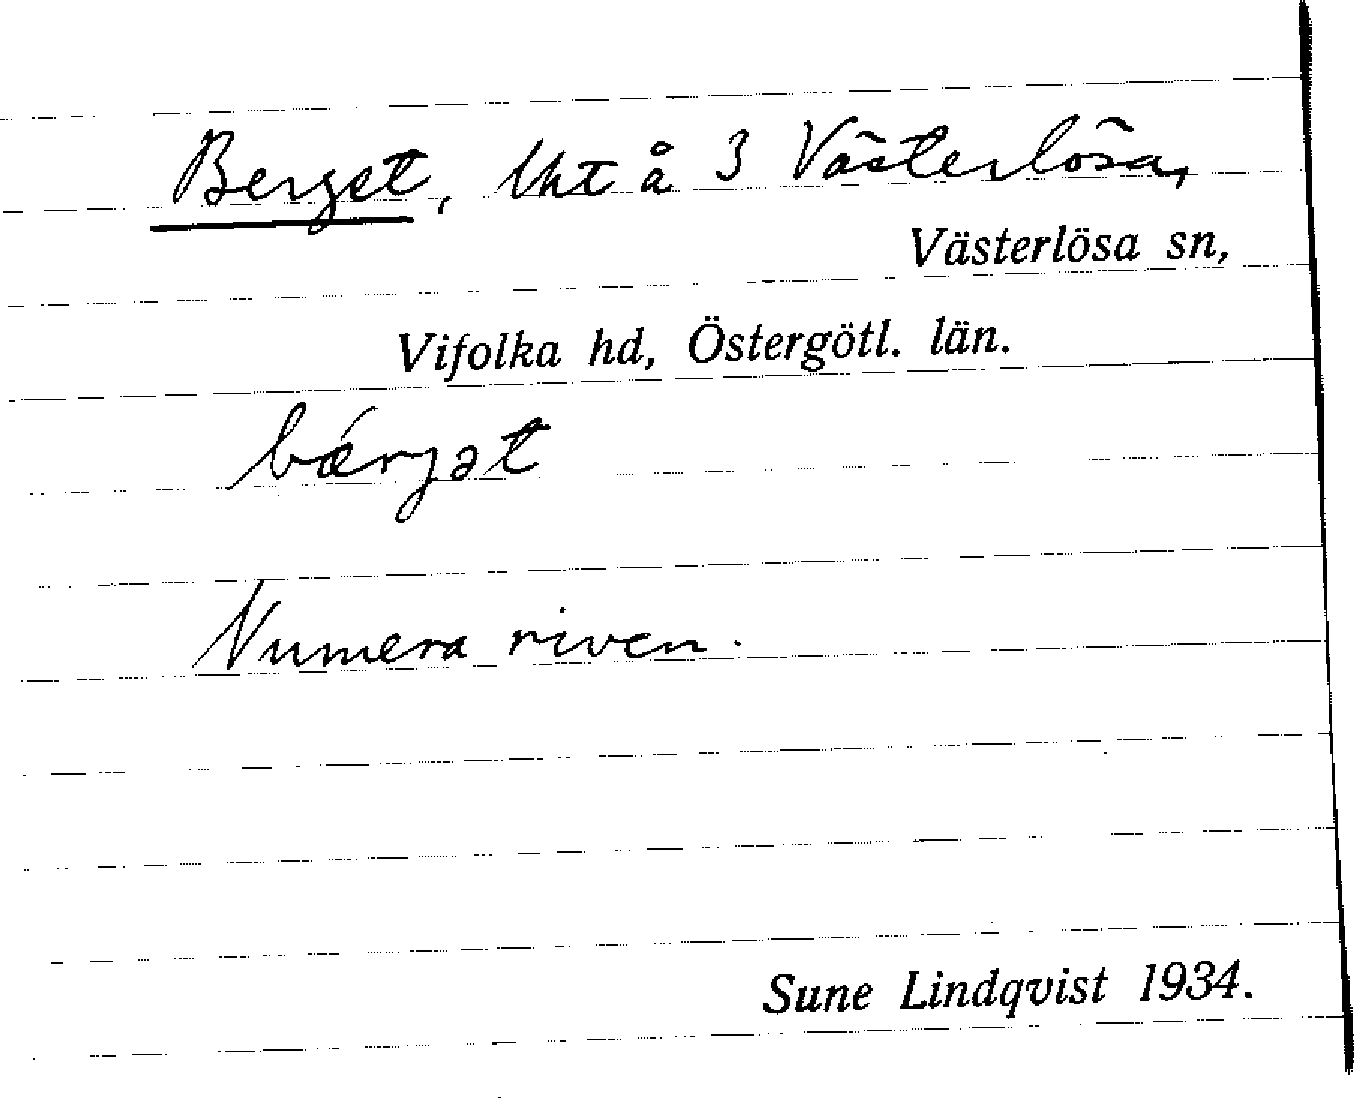 Berget, lht å 3 Västerlösa,
Västerlösa sn,
Vifolka hd, Östergötl. län.
bǽrjət
Numera riven.
Sune Lindqvist 1934.